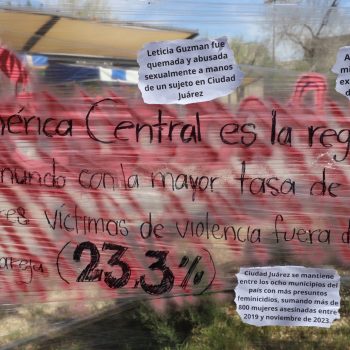 Leticia Guzman fue
quemada y abusada
sexualmente a manos
de un sujeto en Ciudad
Juárez
América Central es la
mundo con la mayor tasa de
víctimas de violencia fuera
(23.3%)
Ciudad Juárez se mantiene
entre los ocho municipios del
país con más presuntos
feminicidios, sumando más de
800 mujeres asesinadas entre
2019 y noviembre de 2023.